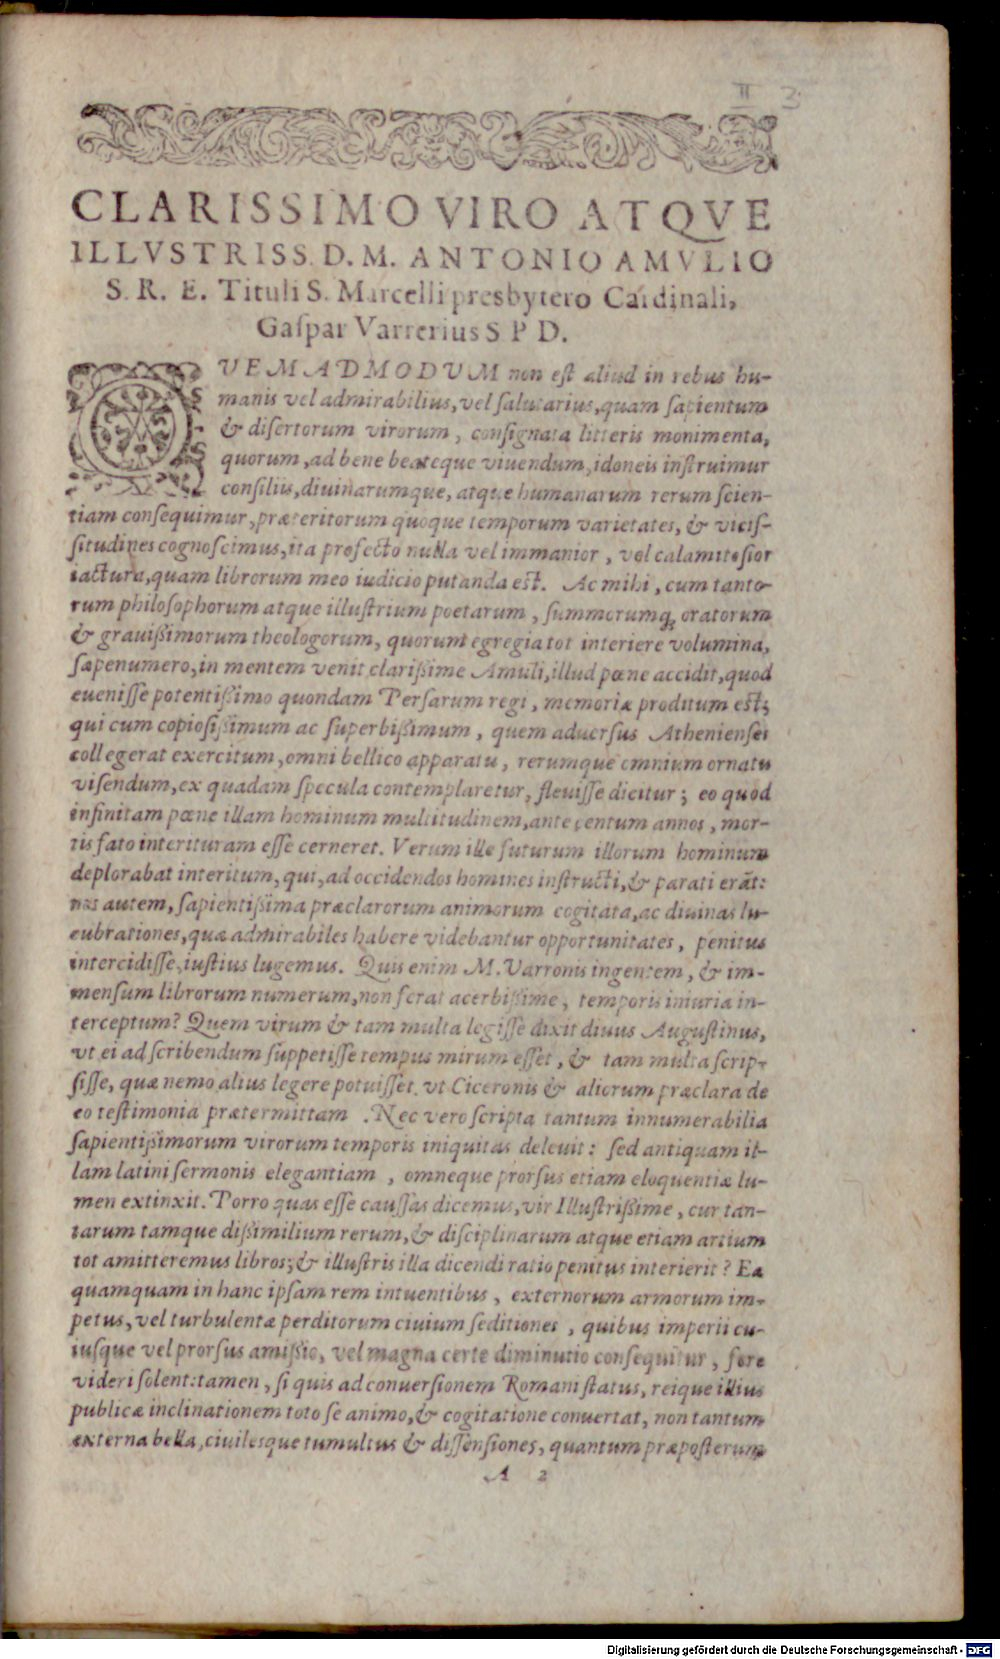 II 3
CLARISSIMO VIRO ATQVE
ILLVSTRISS. D. M. ANTONIO AMVLIO
S. R. E. Tituli S. Marcelli presbytero Cardinali,
Gaſpar Varrerius S P D.
QVEMADMODVM non eſt aliud in rebus hu-
manis vel admirabilius, vel ſalutarius, quam ſapientum
& diſertorum virorum, conſignata litteris monimenta,
quorum, ad bene beateque viuendum, idoneis inſtruimur
conſiliis, diuinarumque, atque humanarum rerum ſcien-
tiam conſequimur, præteritorum quoque temporum varietates, & viciſ-
ſitudines cognoſcimus, ita profecto nulla vel immanior, vel calamitoſior
iactura, quam librorum meo iudicio putanda eſt. Ac mihi, cum tanto-
rum philoſophorum atque illuſtrium poetarum, ſummorumq; oratorum
& grauißimorum theologorum, quorum egregia tot interiere volumina,
ſæpenumero, in mentem venit clarißime Amuli, illud pœne accidit, quod
eueniſſe potentißimo quondam Perſarum regi, memoriæ proditum eſt;
qui cum copioſißimum ac ſuperbißimum, quem aduerſus Athenienſes
collegerat exercitum, omni bellico apparatu, rerumque omnium ornatu
viſendum, ex quadam ſpecula contemplaretur, fleuiſſe dicitur; eo quod
infinitam pœne illam hominum multitudinem, ante centum annos, mor-
tis fato interituram eſſe cerneret. Verum ille futurum illorum hominum
deplorabat interitum, qui, ad occidendos homines inſtructi, & parati erāt:
nos autem, ſapientißima præclarorum animorum cogitata, ac diuinas lu-
cubrationes, quæ admirabiles habere videbantur opportunitates, penitus
intercidiſſe, iuſtius lugemus. Quis enim M. Varronis ingentem, & im-
menſum librorum numerum, non ferat acerbißime, temporis iniuria in-
terceptum? Quem virum & tam multa legiſſe dixit diuus Auguſtinus,
vt ei ad ſcribendum ſuppetiſſe tempus mirum eſſet, & tam multa ſcrip-
ſiſſe, quæ nemo alius legere potuiſſet. vt Ciceronis & aliorum præclara de
eo teſtimonia prætermittam. Nec vero ſcripta tantum innumerabilia
ſapientißimorum virorum temporis iniquitas deleuit: ſed antiquam il-
lam latini ſermonis elegantiam, omneque prorſus etiam eloquentiæ lu-
men extinxit. Porro quas eſſe cauſſas dicemus, vir Illuſtrißime, cur tan-
tarum tamque dißimilium rerum, & diſciplinarum atque etiam artium
tot amitteremus libros; & illuſtris illa dicendi ratio penitus interierit? Ea
quamquam in hanc ipſam rem intuentibus, externorum armorum im-
petus, vel turbulentæ perditorum ciuium ſeditiones, quibus imperii cu-
iuſque vel prorſus amißio, vel magna certe diminutio conſequitur, fere
videri ſolent: tamen, ſi quis ad conuerſionem Romani ſtatus, reique illius
publicæ inclinationem toto ſe animo, & cogitatione conuertat, non tantum
externa bella, ciuileſque tumultus & diſſenſiones, quantum præpoſterum
A 2
Digitalisierung gefördert durch die Deutsche Forschungsgemeinschaft - DFG